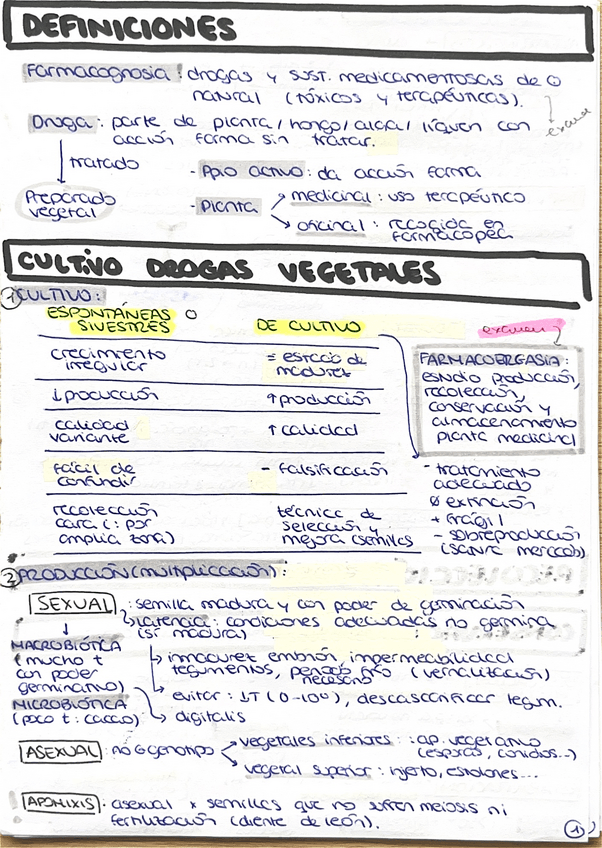 DEFINICIONES
Farmacognosia: drogas y sust. medicamentosas de O
natural (tóxicos y terapéuticos).
examen
Droga: parte de planta/hongo/alga/líquen con
acción farma sin tratar.
tratado
Preparado
vegetal
- Ppio activo: da acción farma
- Planta
medicinal: uso terapéutico
oficinal: recogida en
farmacopea
CULTIVO DROGAS VEGETALES
① CULTIVO:
ESPONTÁNEAS O
SIVESTRES
DE CULTIVO
crecimiento
irregular
= estado de
madurez
↓ producción
↑ producción
calidad
variante
↑ calidad
fácil de
confundir
- falsificación
recolección
cara (: por
amplia zona)
técnica de
selección y
mejora (semillas
examen
FARMACOERGASIA:
estudio producción,
recolección,
conservación y
almacenamiento
planta medicinal
- tratamiento
adecuado
Ø extinción
+ frágil
- sobreproducción
② PRODUCCIÓN (multiplicación):
SEXUAL: semilla madura y con poder de germinación
latencia: condiciones adecuadas no germina
(sí madura)
MACROBIÓTICA
(mucho t
con poder
germinativo)
inmadurez embrión, impermeabilidad
tegumentos, periodo frío (vernalización)
necesario
evitar: ↓T (0-10º), descascarificar tegum.
MICROBIÓTICA
(poco t: cacao)
digitalis
ASEXUAL: no genotipo
vegetales inferiores: ap. vegetativo
(esporas, conidios...)
vegetal superior: injerto, estolones...
APOMIXIS: asexual x semillas que no sufren meiosis ni
fertilización (diente de león).
①